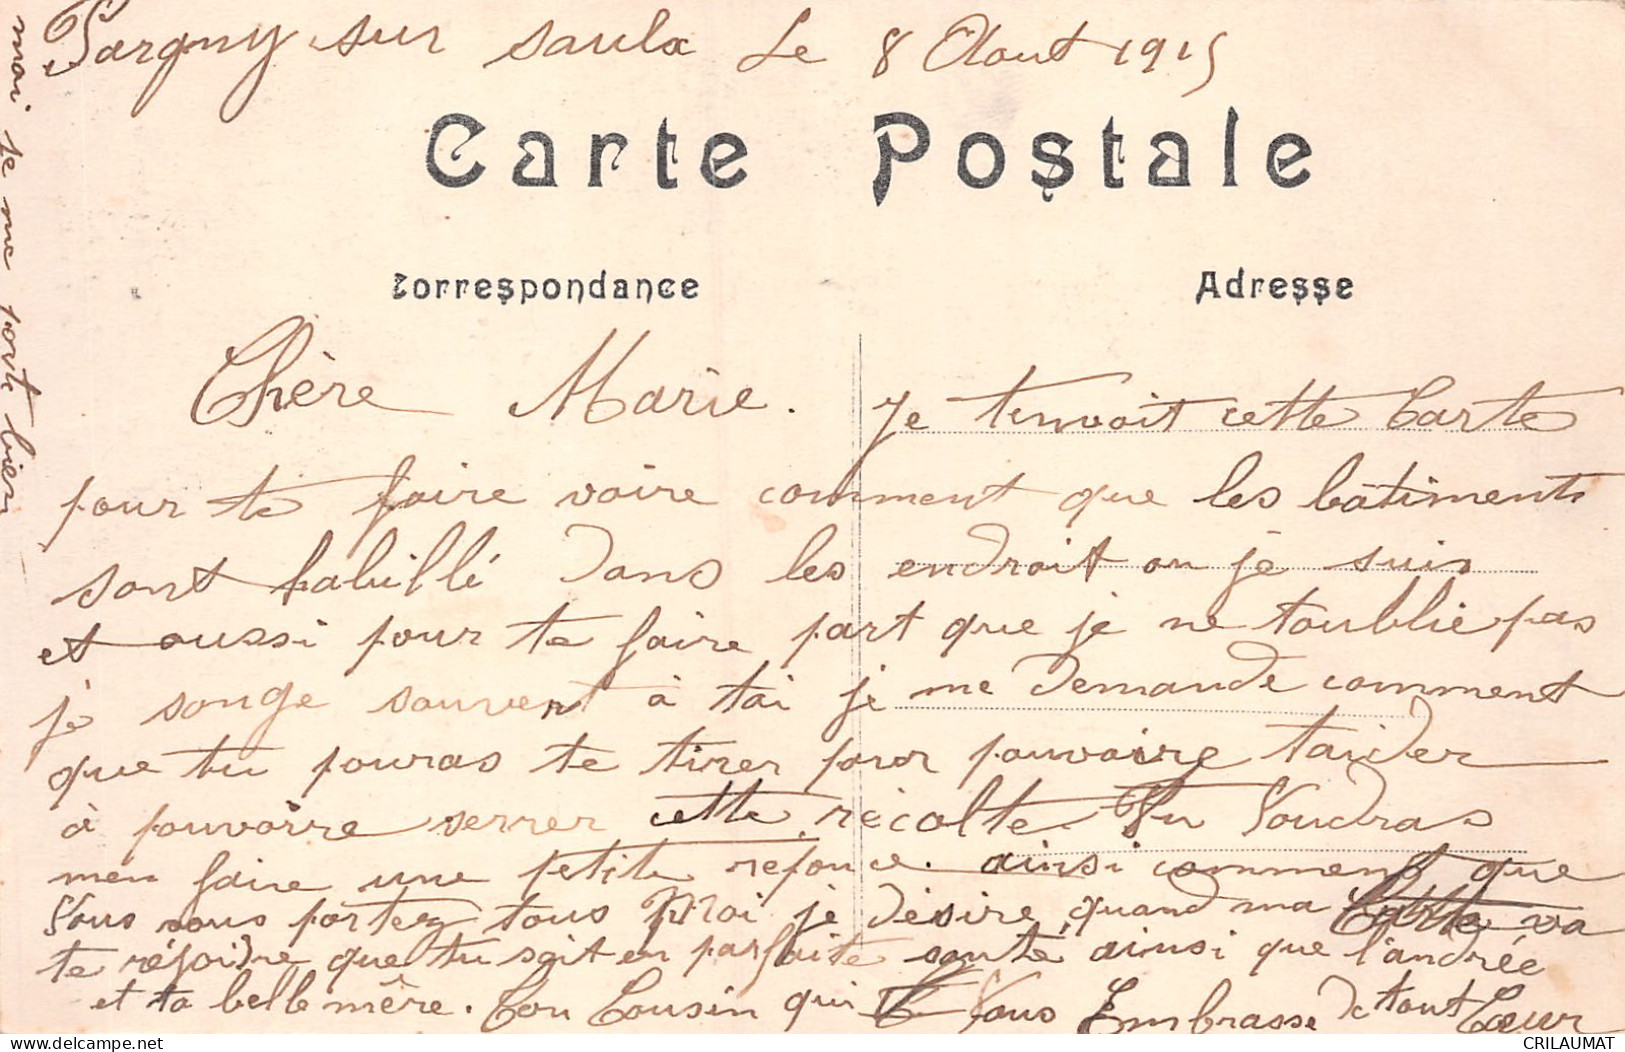 Pargny sur saulx Le 8 Aout 1915
Carte Postale
Correspondance
Adresse
Chère Marie. Je tenvoit cette Carte
pour te faire voire comment que les bâtiments
sont habillé dans les endroit ou je suis
et aussi pour te faire part que je ne toublie pas
je songe souvent à tai je me demande comment
que tu pouras te tirer pour pouvoire taider
à pouvoire serrer cette récolte Tu Voudras
men faire une petite reponce. ainsi comment que
Vous vous portez tous Moi je désire quand ma Carte va
te réjoidre que tu soit en parfaite santé ainsi que l'andrée
et ta belle mère. Ton Cousin qui Vous Embrasse de tout Cœur
moi je me porte bien
CRILAUMAT